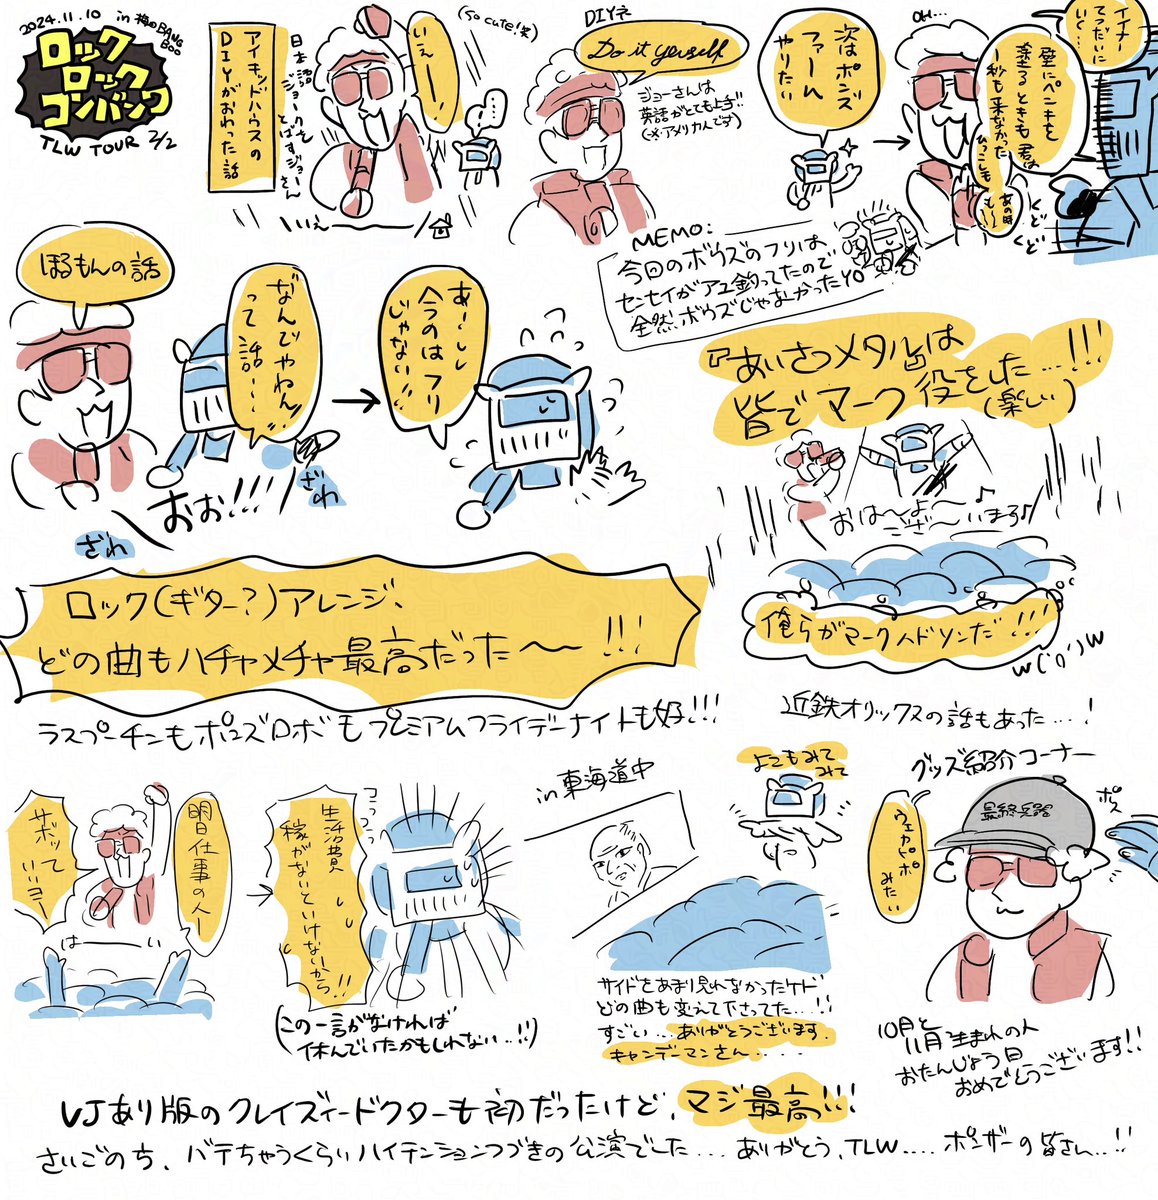 2024.11.10 in 梅田BANG
BOO
ロック
ロック
コンバンワ
TLW TOUR 2/2
アイキッドハウスの
DIYがおわった話
日本語ジョークを
とばすジョーさん
いぇー!
(so cute!*)
…
いいぇー
DIYネ
Do it yerself
ジョーさんは
英語がとても上手!!
(※アメリカ人です)
次はポンズ
ファーム
やりたい
OH...
壁にペンキを
塗るときも君は
一秒も来なかった
ひっこしも
あの時
も…
くど
くど
MEMO:
今回のボウズのフリは、
センセイがアユ釣ってたので
全然ボウズじゃなかったYO
ほるもんの話
なんでやねん
って話…
おぉ!!!
ざわ
ざわ
あーー
今のはフリ
じゃない!!
『あいさつメタル』は
皆でマーク役をした…!!!
(楽しい)
おは〜よ〜♪
ござ〜います♪
俺らがマークハドソンだ!!!
w('0')w
ロック(ギター?)アレンジ、
どの曲もハチャメチャ最高だった〜〜!!!
ラスプーチンもポンズロボもプレミアムフライデーナイトも好!!!
近鉄オリックスの話もあった…!
明日仕事の人ー
サボって
いいヨ
はーーい
生活費
稼がないといけないから!!
(この一言がなければ
休んでいたかもしれない…!!)
in 東海道中
よこもみて
みて
サイドをあまり見れなかったケド
どの曲も変えて下さってた…!!
すごい…ありがとうございます
キャンデーマンさん....
グッズ紹介コーナー
最終兵器
ウェカピポ
みたい
ポス
10月と
11月生まれの人
おたんじょう日
おめでとうございます!!
VJあり版のクレイズィードクターも初だったけど、マジ最高!!!
さいごのち、バテちゃうくらいハイテンションつづきの公演でした...ありがとう、TLW....ポンザーの皆さん..!!